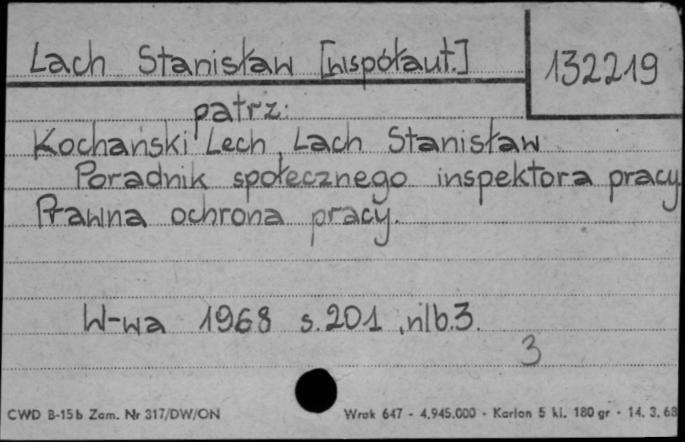 Lach Stanisław [współaut.] 132219
patrz:
Kochański Lech, Lach Stanisław
Poradnik społecznego inspektora pracy
Prawna ochrona pracy.
W-wa 1968 s.201, nlb.3.
3
CWD B-15b Zam. Nr 317/DW/ON Wrak 647 - 4.945.000 - Karton 5 kl. 180 gr - 14. 3. 68